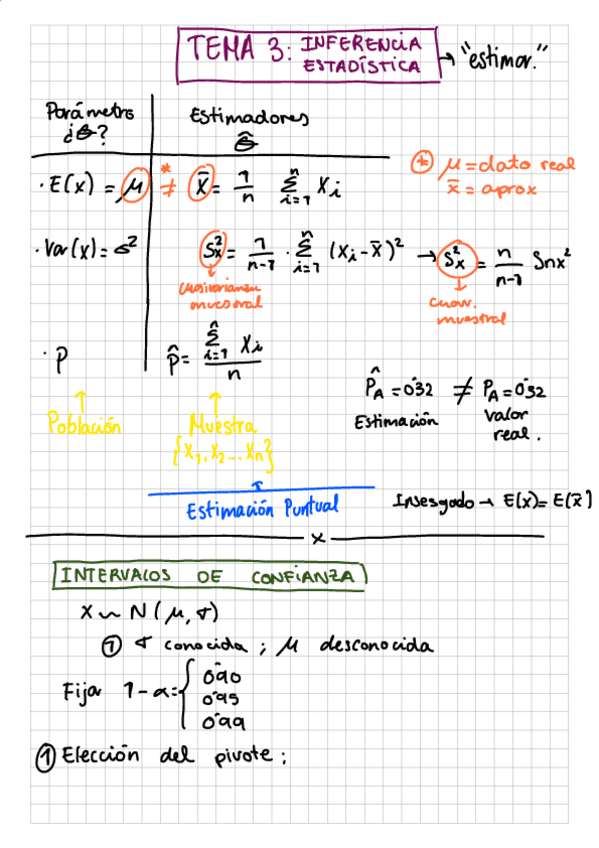 TEMA 3: INFERENCIA ESTADÍSTICA → "estimar."
Parámetro ¿θ?
Estimadores θ̂
· E(x) = μ ≠* x̄ = 1/n Σ(i=1 → n) Xi
(*) μ = dato real
x̄ = aprox
· Var(x) = σ² Sx² = 1/(n-1) · Σ(i=1 → n) (xi - x̄)² → Sx² = n/(n-1) Snx²
Cuasivarianza muestral
Cuasv. muestral
· P p̂ = Σ(i=1 → n) Xi / n
P̂A = 0'32 ≠ PA = 0'32
Estimación
Valor real.
↑ Población
↑ Muestra
{X1, X2 ... Xn}
↑
Estimación Puntual
Insesgado → E(x) = E(x̄)
x
INTERVALOS DE CONFIANZA
X ~ N(μ, σ)
① σ conocida ; μ desconocida
Fijar 1-α = { 0'90
0'95
0'99
① Elección del pivote :